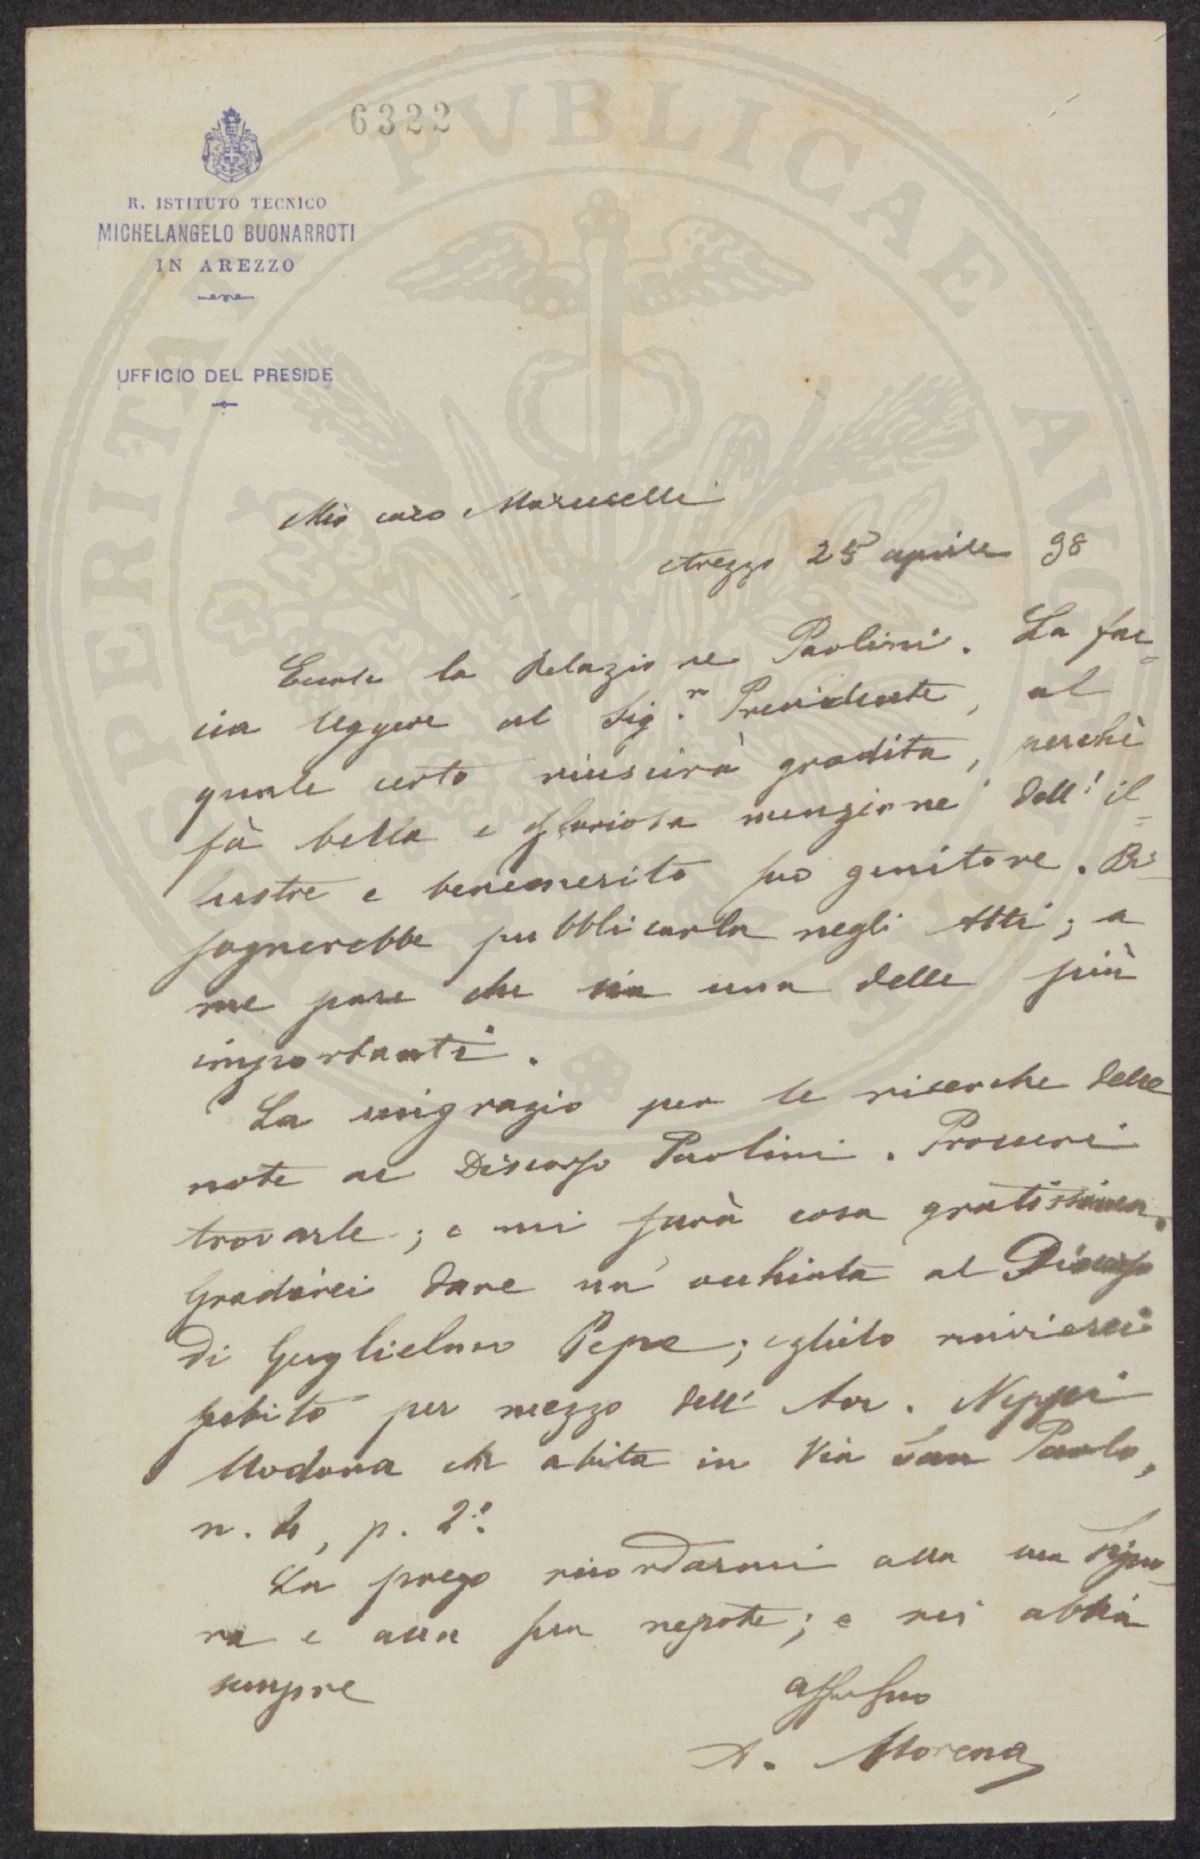 6322
R. ISTITUTO TECNICO
MICHELANGELO BUONARROTI
IN AREZZO
UFFICIO DEL PRESIDE
Mio caro Maruselli
Arezzo 25 aprile 98
Eccole la Relazione Paolini. La fac=
cia leggere al Sig.r Presidente, al
quale certo riuscirà gradita, perchè
fà bella e gloriosa menzione dell' il=
lustre e benemerito suo genitore. Bi
sognerebbe pubblicarla negli Atti; a
me pare che sia una delle più
importanti.
La ringrazio per le ricerche delle
note al Discorso Paolini. Procuri
trovarle; e mi farà cosa gratissima.
Gradirei dare un' occhiata al Discorso
di Guglielmo Pepe; glielo rinvierei
subito per mezzo dell' Avv. Neppi
Modona che abita in Via San Paolo,
n. 4, p. 2.º
La prego ricordarmi alla sua Signo
ra e alla sua nepote; e mi abbia
sempre
aff.mo suo
A. Morena
PVBLICAE